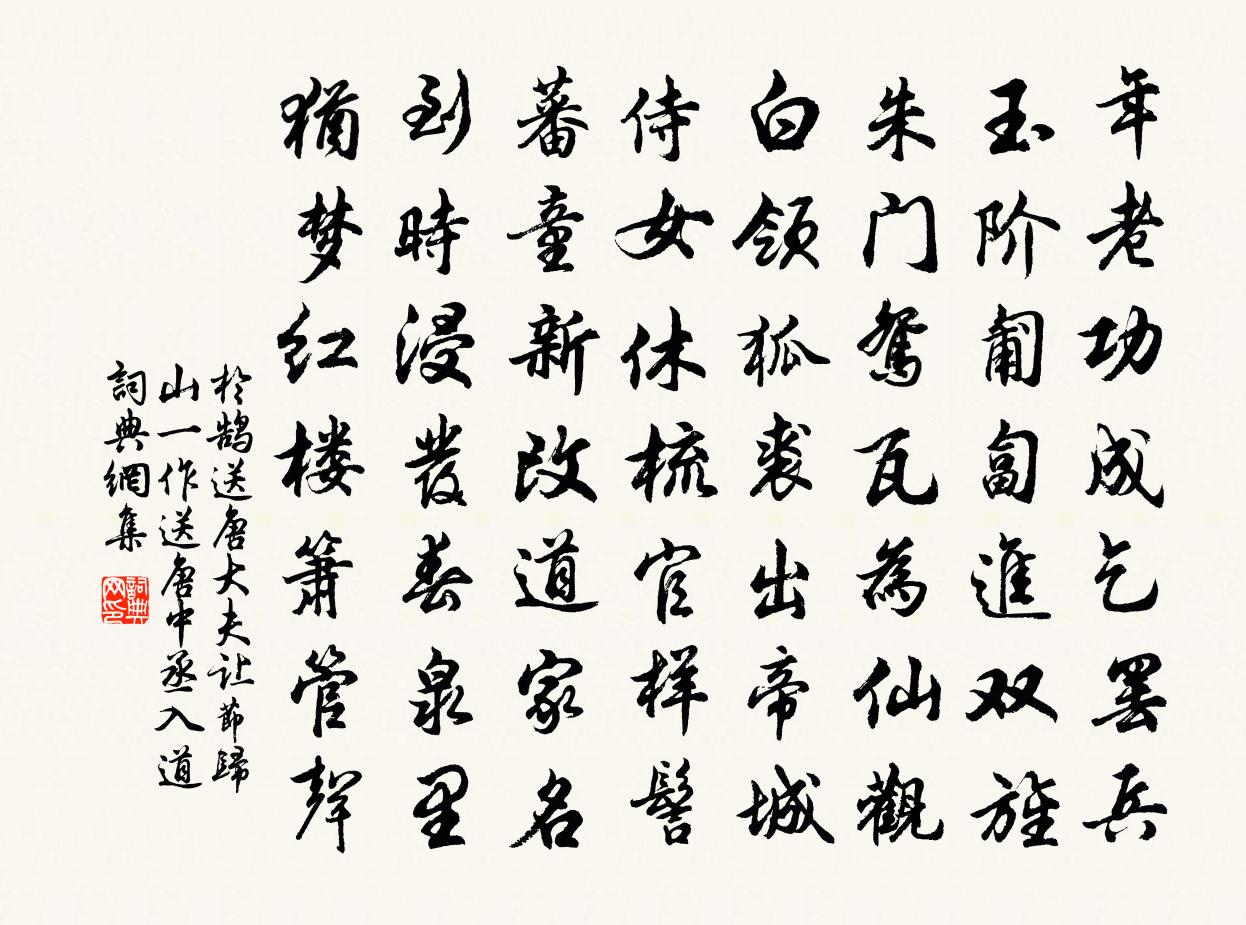 年老功成乞罢兵
玉阶匍匐進双旌
朱门鸳瓦為仙觀
白领狐裘出帝城
侍女休梳官样髻
蕃童新改道家名
到時浸發春泉里
猶梦红楼箫管聲
於鹄送唐大夫让節歸
山一作送唐中丞入道
詞典網集